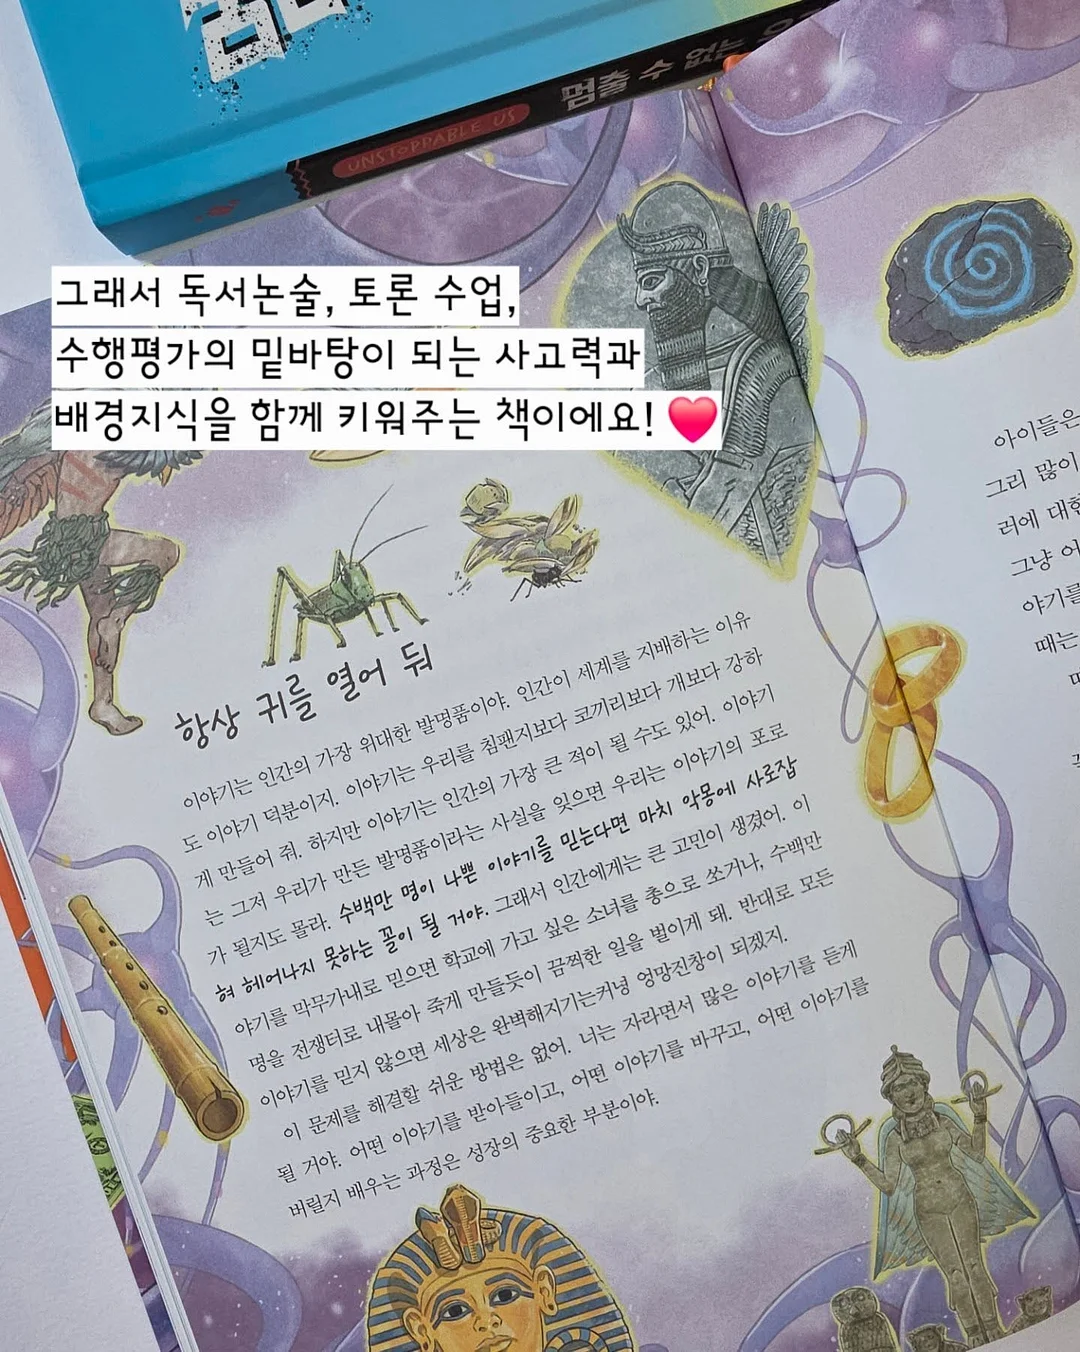 멈출 수 없는
UNSTOPPABLE US
그래서 독서논술, 토론 수업,
수행평가의 밑바탕이 되는 사고력과
배경지식을 함께 키워주는 책이에요!
항상 귀를 열어 둬
이야기는 인간의 가장 위대한 발명품이야. 인간이 세계를 지배하는 이유
도 이야기 덕분이지. 이야기는 우리를 침팬지보다 코끼리보다 개보다 강하
게 만들어 줘. 하지만 이야기는 인간의 가장 큰 적이 될 수도 있어. 이야기
는 그저 우리가 만든 발명품이라는 사실을 잊으면 우리는 이야기의 포로
가 될지도 몰라. 수백만 명이 나쁜 이야기를 믿는다면 마치 악몽에 사로잡
혀 헤어나지 못하는 꼴이 될 거야. 그래서 인간에게는 큰 고민이 생겼어. 이
야기를 막무가내로 믿으면 학교에 가고 싶은 소녀를 총으로 쏘거나, 수백만
명을 전쟁터로 내몰아 죽게 만들듯이 끔찍한 일을 벌이게 돼. 반대로 모든
이야기를 믿지 않으면 세상은 완벽해지기는커녕 엉망진창이 되겠지.
이 문제를 해결할 쉬운 방법은 없어. 너는 자라면서 많은 이야기를 듣게
될 거야. 어떤 이야기를 받아들이고, 어떤 이야기를 바꾸고, 어떤 이야기를
버릴지 배우는 과정은 성장의 중요한 부분이야.
아이들은
그리 많이
러에 대한
그냥 어
야기를
때는